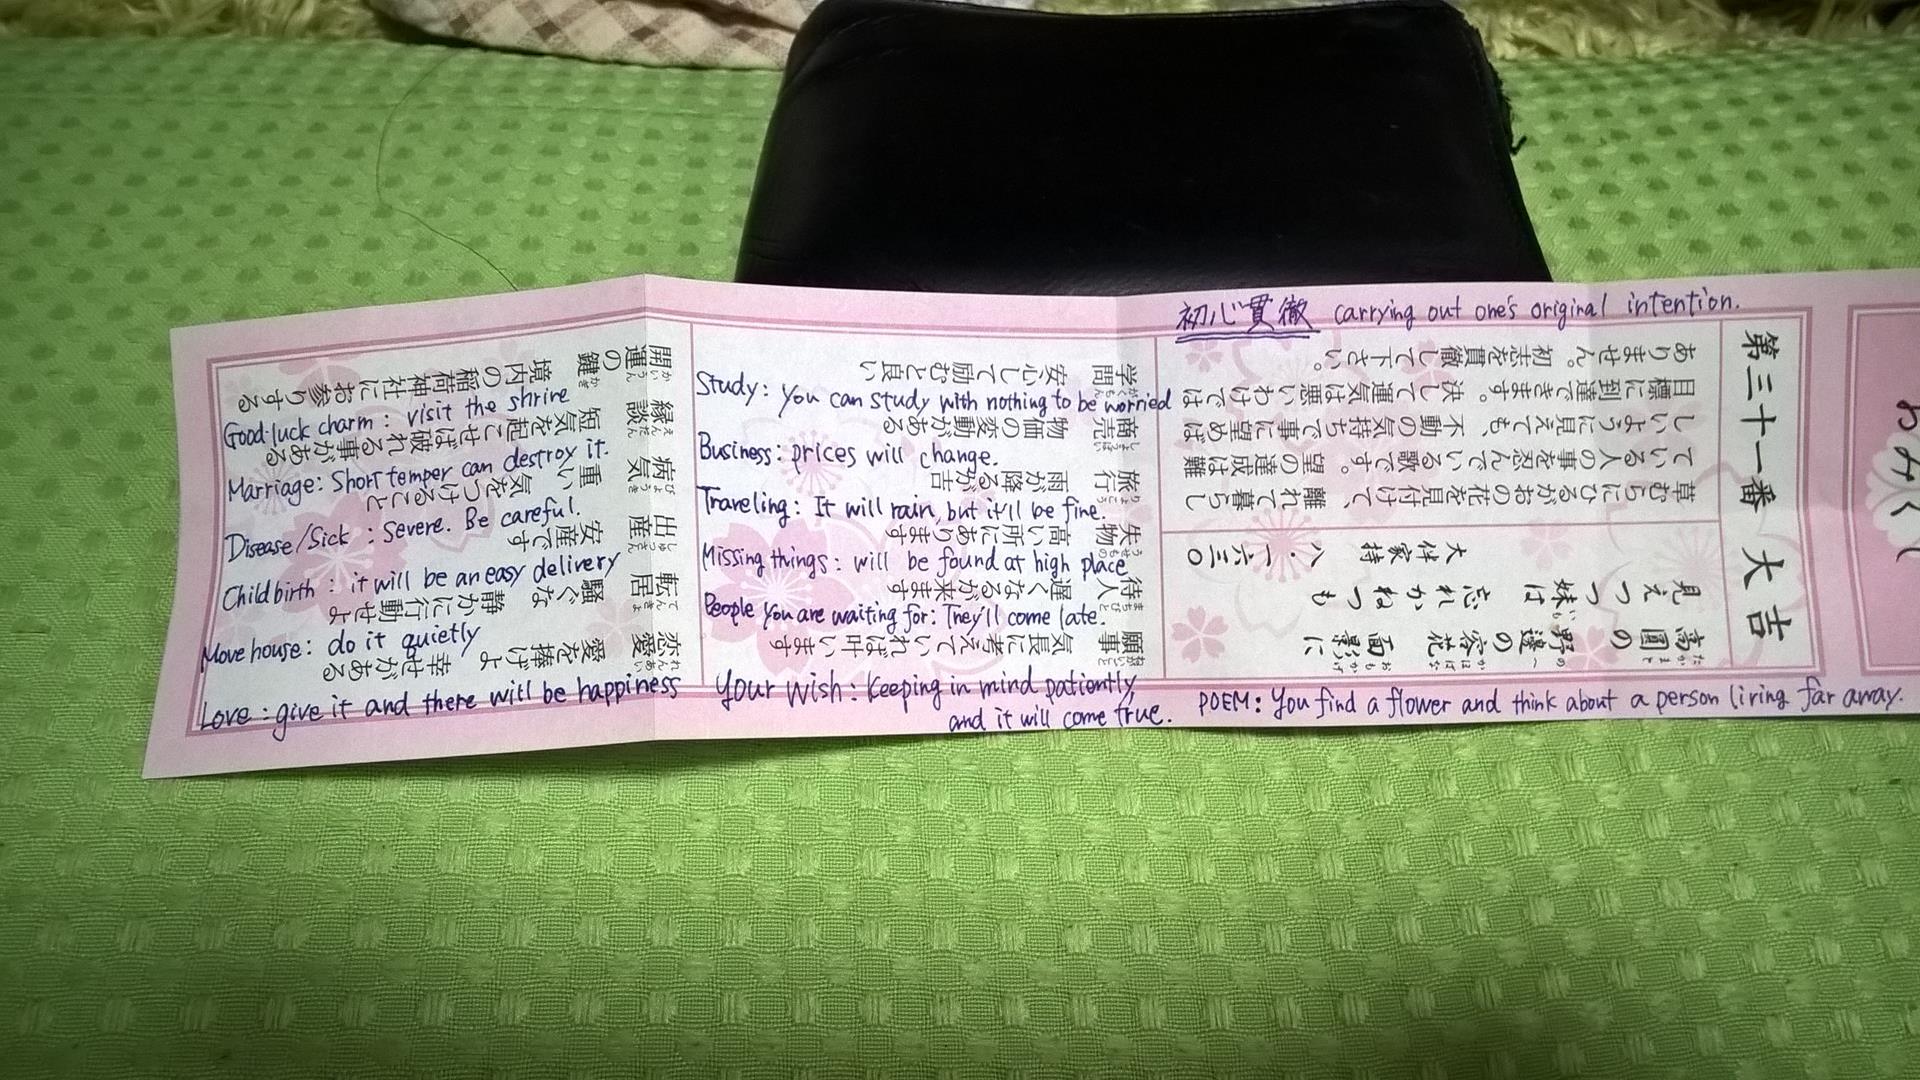 おみくじ
第三十一番 大吉
初心貫徹 carrying out one's original intention.
高圓の 野邊の容花 面影に
見えつつ妹は 忘れかねつも
大伴家持 八・一六三〇
POEM: You find a flower and think about a person living far away.
草むらにひるがおの花を見付けて、離れて暮らし
ている人の事を忍んでいる歌です。望の達成は難
しいように見えても、不動の気持ちで事に望めば
目標に到達できます。決して運気は悪いわけでは
ありません。初志を貫徹して下さい。
願事 気長に考えていれば叶います
Your wish: Keeping in mind patiently,
and it will come true.
待人 遅くなるが来ます
People you are waiting for: They'll come late.
失物 高い所にあります
Missing things: will be found at high place
旅行 雨が降るが吉
Traveling: It will rain, but it'll be fine.
商売 物価の変動がある
Business: prices will change.
学問 安心して励むと良い
Study: You can study with nothing to be worried
恋愛 愛を捧げよ 幸せがある
Love: give it and there will be happiness
転居 騒ぐな 静かに行動せよ
Move house: do it quietly
出産 安産です
Childbirth: it will be an easy delivery
病気 重い 気をつけること
Disease/Sick: Severe. Be careful.
縁談 短気を起こせば破れる事がある
Marriage: Short temper can destroy it.
開運の鍵 境内の稲荷神社にお参りする
Good-luck charm: visit the shrine